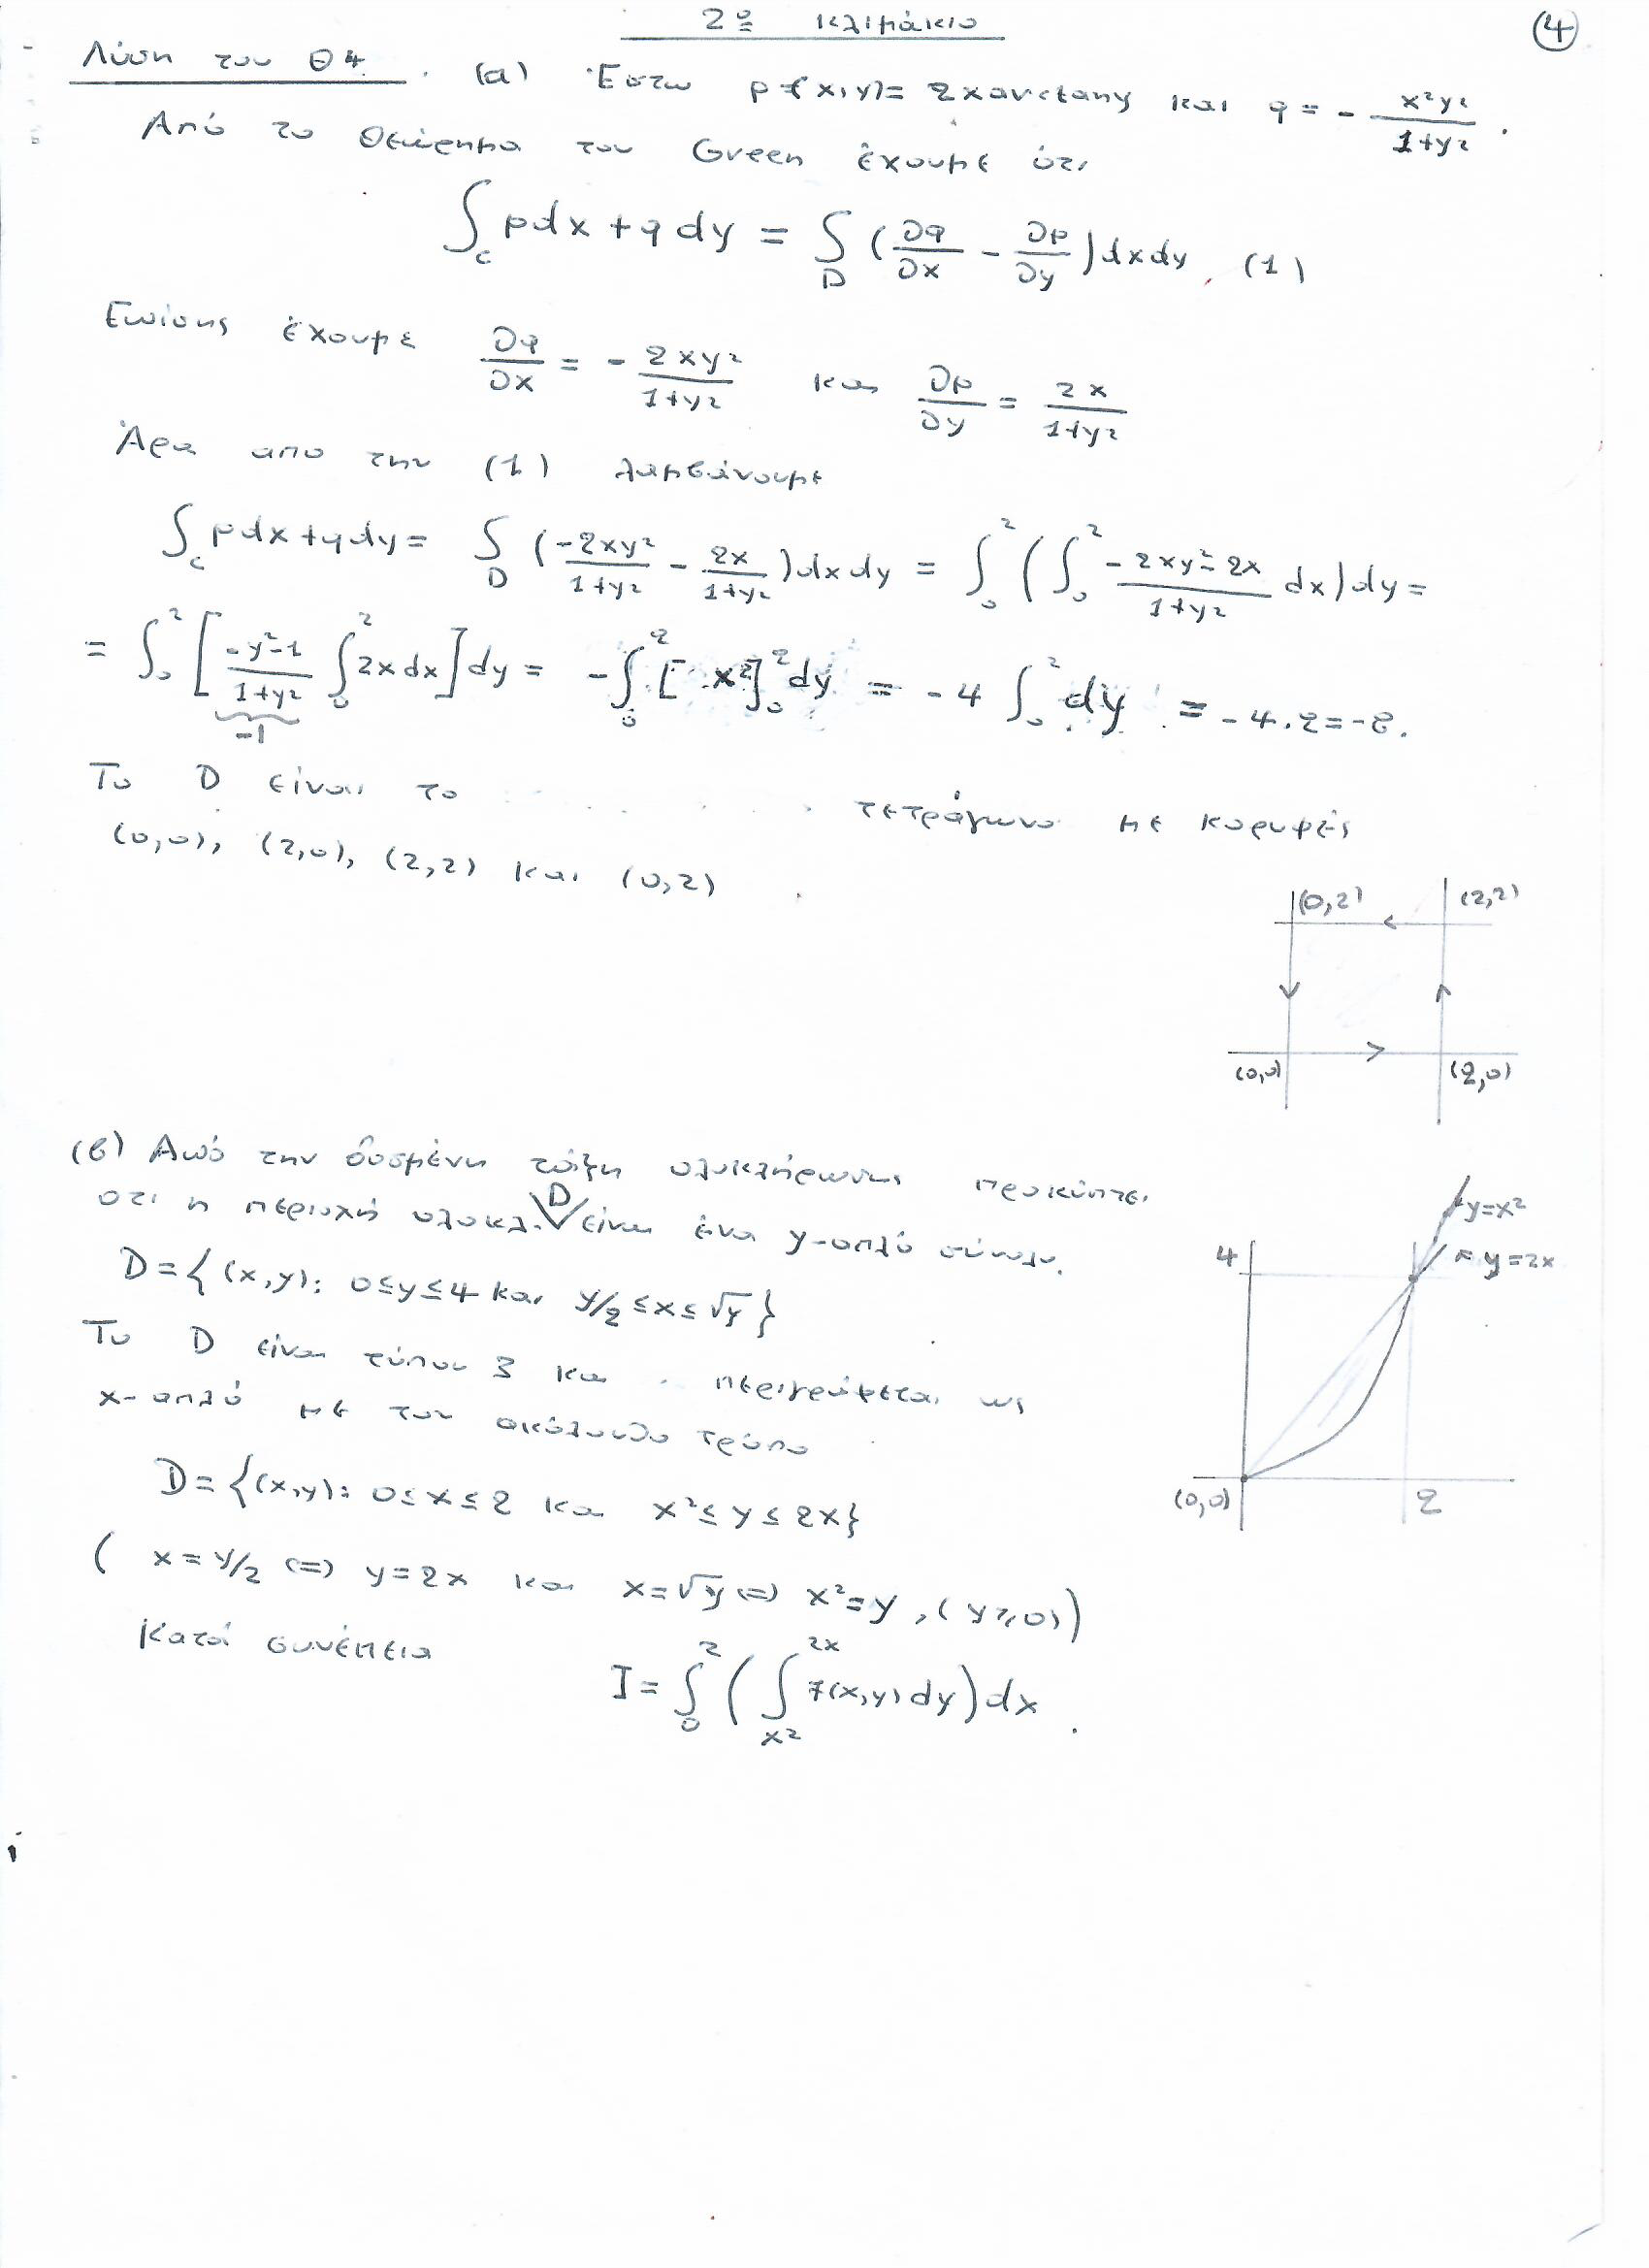 2ο κλιμάκιο
④
Λύση του Θ4. (α) Έστω p(x,y)= 2xarctany και q = - x²y²/(1+y²).
Από το Θεώρημα του Green έχουμε ότι
∫_C pdx + qdy = ∫_D (∂q/∂x - ∂p/∂y)dxdy. (1)
Επίσης έχουμε ∂q/∂x = - 2xy²/(1+y²) και ∂p/∂y = 2x/(1+y²)
Άρα απο την (1) λαμβάνουμε
∫_C pdx+qdy = ∫_D (-2xy²/(1+y²) - 2x/(1+y²))dxdy = ∫_0^2 (∫_0^2 (-2xy²-2x)/(1+y²) dx)dy =
= ∫_0^2 [(-y²-1)/(1+y²) ∫_0^2 2xdx]dy = -∫_0^2 [x²]_0^2 dy = -4 ∫_0^2 dy = -4.2=-8.
-1
Το D είναι το τετράγωνο με κορυφές
(0,0), (2,0), (2,2) και (0,2)
(0,2) (2,2)
(0,0) (2,0)
(β) Από την δοσμένη τάξη ολοκλήρωσης προκύπτει
οτι η περιοχή ολοκλ. D είναι ένα y-απλό σύνολο.
D={(x,y): 0≤y≤4 και y/2≤x≤√y}
Το D είναι τύπου 3 και περιγράφεται ως
x-απλό με τον ακόλουθο τρόπο
D={(x,y): 0≤x≤2 και x²≤y≤2x}
( x=y/2 (=) y=2x και x=√y (=) x²=y, (y≥0))
Κατά συνέπεια I = ∫_0^2 (∫_{x²}^{2x} f(x,y)dy)dx.
y=x²
4 y=2x
(0,0) 2